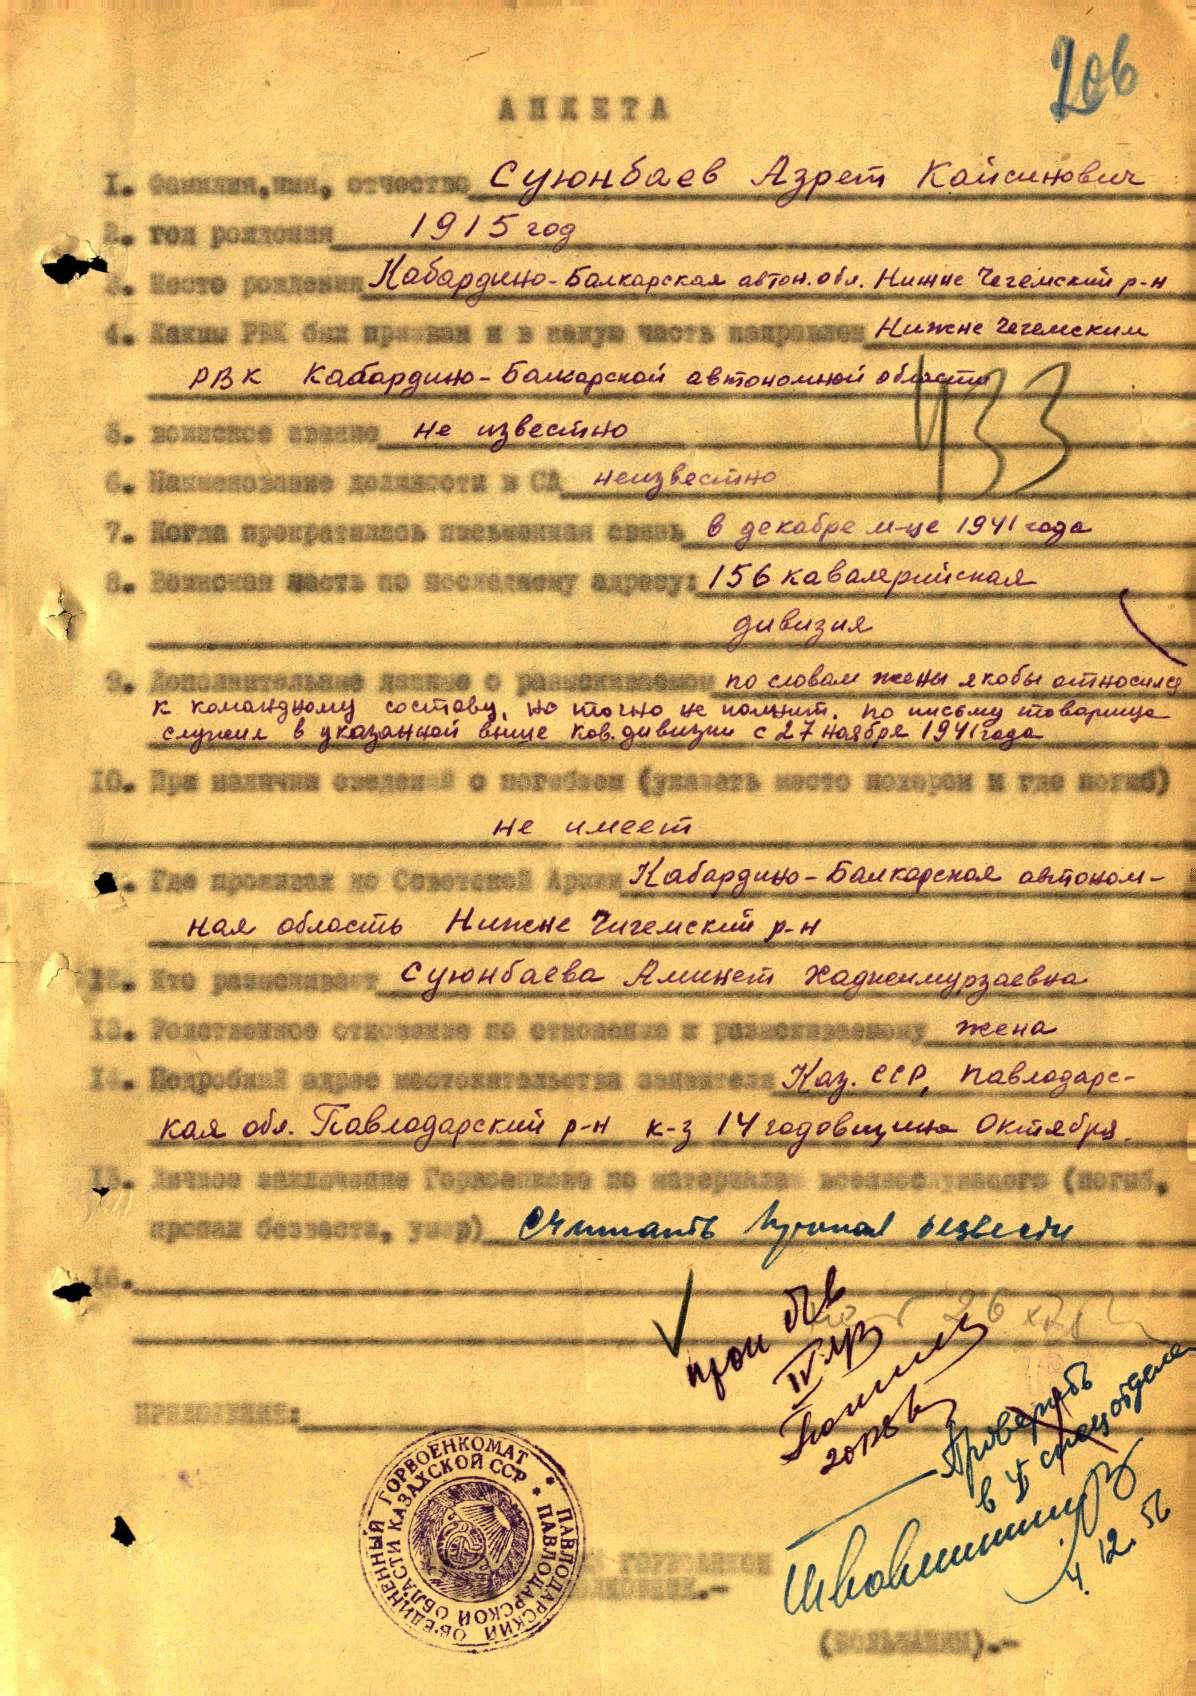 206
АНКЕТА
1. Фамилия, имя, отчество Суюнбаев Азрет Кайсинович
2. год рождения 1915 год
3. Место рождения Кабардино-Балкарская автон. обл. Нижне Чегемский р-н
4. Каким РВК был призван и в какую часть направлен Нижне Чегемским
РВК Кабардино-Балкарской автономной области
433
5. воинское звание не известно
6. Наименование должности в СА неизвестно
7. Когда прекратилась письменная связь в декабре м-це 1941 года
8. Воинская часть по последнему адресу: 156 кавалерийская
дивизия
9. Дополнительные данные о разыскиваемом по словам жены якобы относился
к командному составу, но точно не помнит. по письму товарища
служил в указанной выше кав. дивизии с 27 ноября 1941 года
10. При наличии сведений о погибшем (указать место похорон и где погиб)
не имеет
. Где проживал до Советской Армии Кабардино-Балкарская автоном-
ная область Нижне Чигемский р-н
12. Кто разыскивает Суюнбаева Аминет Хаджимурзаевна
13. Родственное отношение по отношению к разыскиваемому жена
14. Подробный адрес местожительства заявителя Каз. ССР, Павлодарс-
кая обл. Павлодарский р-н к-з 14 годовщина Октября.
15. Личное заключение Горвоенкома по материалам военнослужащего (погиб,
пропал безвести, умер) Считать пропал безвести
16.
Проверить
в V спецотделе
4.12.56
ПРИЛОЖЕНИЕ:
ОБ'ЕДИНЕННЫЙ ГОРВОЕНКОМАТ * ПАВЛОДАРСКИЙ
ОБЛАСТИ КАЗАХСКОЙ ССР * ПАВЛОДАРСКОЙ
ГОРВОЕНКОМ
ПОЛКОВНИК.-
(ВОЛЬВАЧЕВ).-